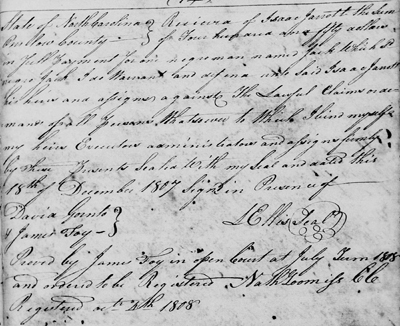 State of North Carolina } Received of Isaac Jarrott the Sum
Onslow County } of Four hundred and fifty dollars
in full payment for one negro man named Jack which
I Warrant and defend unto said Isaac Jarrott
his heirs and assigns against The Lawful Claims or de-
mans of all Persons Whatsoever to Which I bind myself
my heirs Executors administrators and assigns firmly
by these Presents Sealed With my Seal and dated this
18th of December 1807 Signd in Presence of
David }
& James Foy }
L Ellis Seal
Proved by James Foy in open Court at July Term 1808
and ordered to be Registered Nath Loomiss Clk
Registered 4th 1808